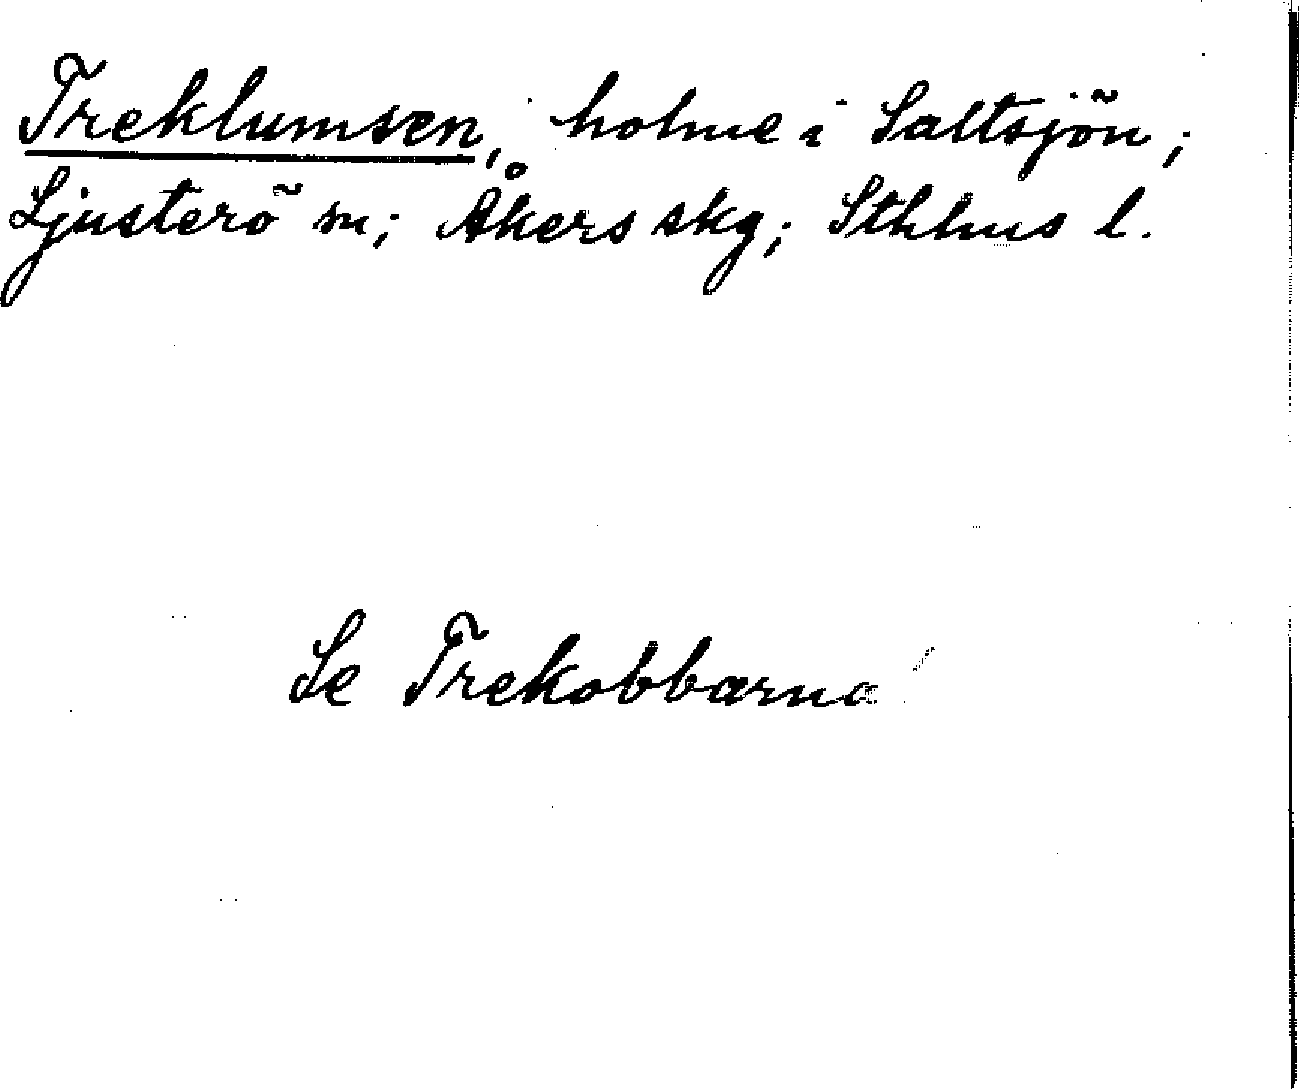 Treklumsen, holme i Saltsjön;
Ljusterö sn; Åkers skg; Sthlms l.
Se Trekobbarna